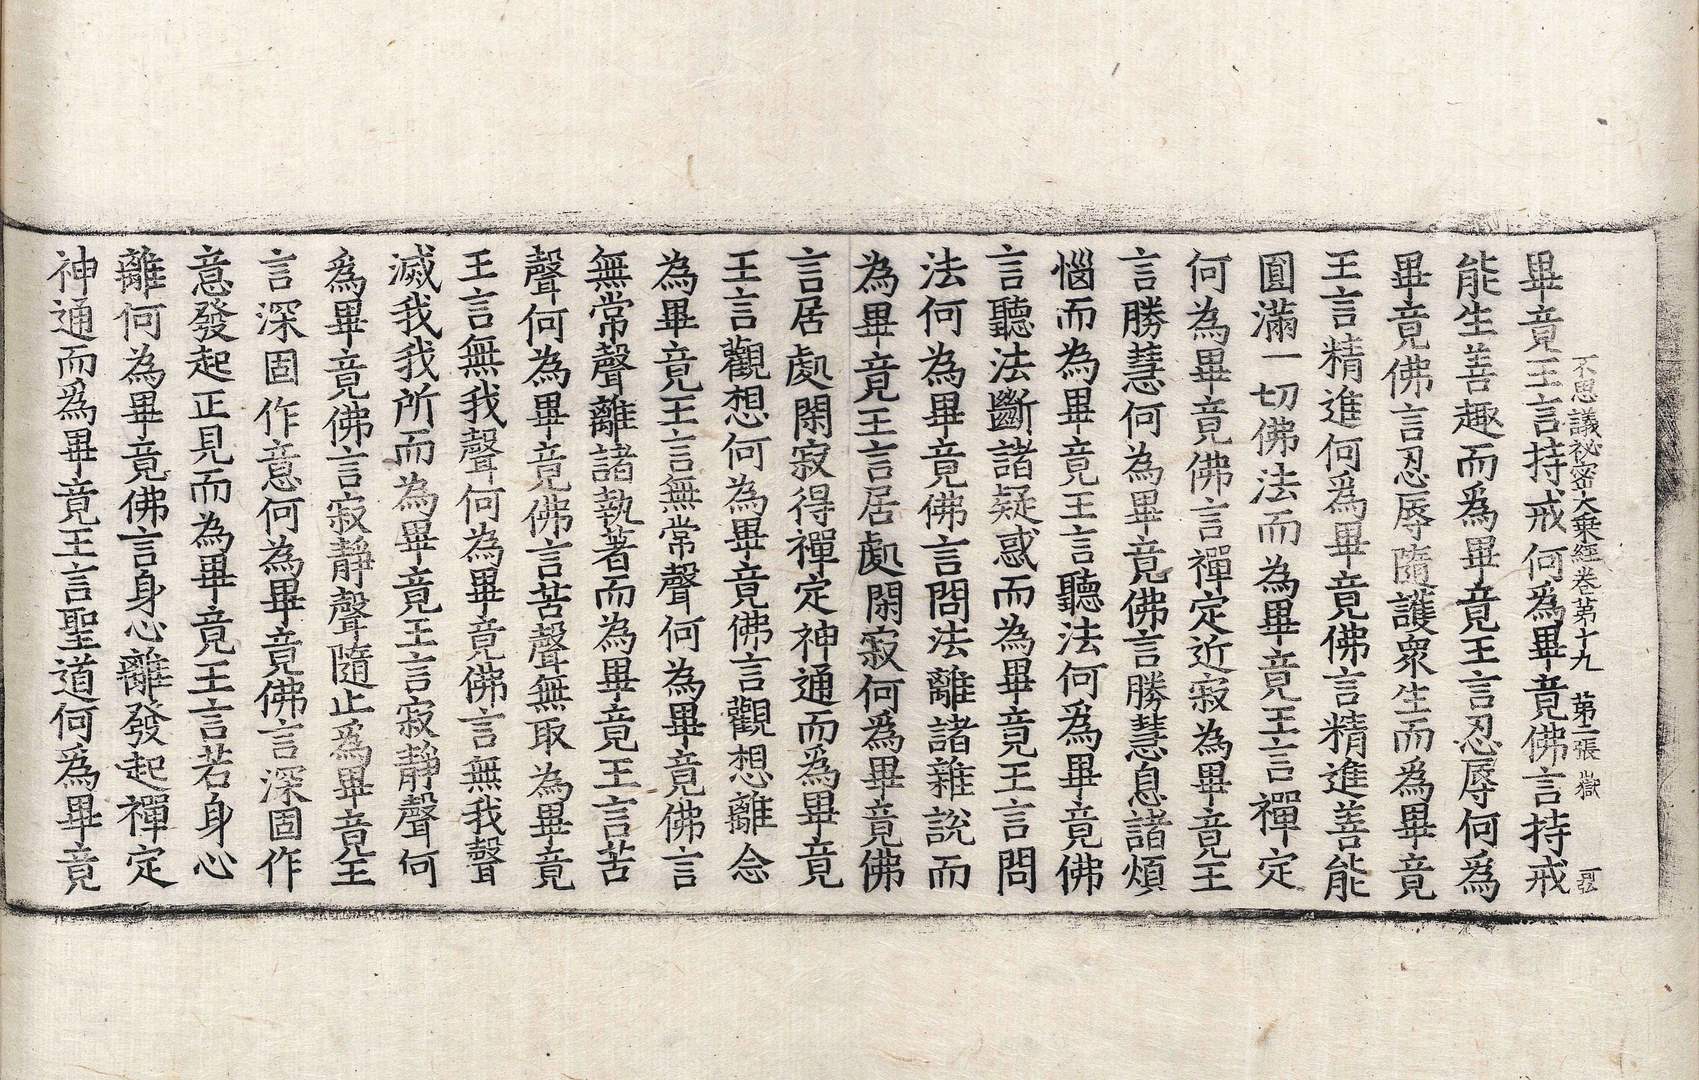 不思議祕密大乗經卷第十九 第二張 嶽
畢竟王言持戒何為畢竟佛言持戒
能生善趣而爲畢竟王言忍辱何爲
畢竟佛言忍辱隨護衆生而爲畢竟
王言精進何爲畢竟佛言精進善能
圓滿一切佛法而為畢竟王言禪定
何為畢竟佛言禪定近寂為畢竟王
言勝慧何為畢竟佛言勝慧息諸煩
惱而為畢竟王言聽法何爲畢竟佛
言聽法斷諸疑惑而為畢竟王言問
法何為畢竟佛言問法離諸雜說而
為畢竟王言居處閑寂何爲畢竟佛
言居處閑寂得禪定神通而為畢竟
王言觀想何為畢竟佛言觀想離念
為畢竟王言無常聲何為畢竟佛言
無常聲離諸執著而為畢竟王言苦
聲何為畢竟佛言苦聲無取為畢竟
王言無我聲何為畢竟佛言無我聲
滅我我所而為畢竟王言寂靜聲何
爲畢竟佛言寂靜聲隨止爲畢竟王
言深固作意何為畢竟佛言深固作
意發起正見而為畢竟王言若身心
離何為畢竟佛言身心離發起禪定
神通而爲畢竟王言聖道何爲畢竟